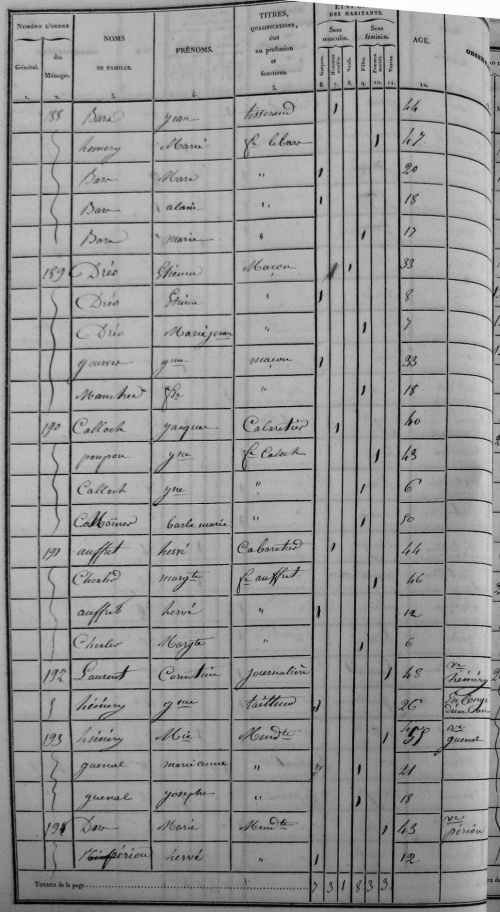 NUMÉRO D'ORDRE
Général.
des Ménages.
NOMS
DE FAMILLE.
PRÉNOMS.
TITRES,
QUALIFICATIONS,
état
ou profession
et
fonctions.
DES HABITANTS.
Sexe masculin.
Sexe féminin.
Garçons.
Hommes mariés.
Veufs.
Filles.
Femmes mariées.
Veuves.
AGE.
1. 2. 3. 4. 5. 6. 7. 8. 9. 10. 11. 12.
188 Bara jean tisserand 1 44
hemery Marie fe lebare 1 47
Bare Marc " 1 20
Bare alain " 1 18
Bare marie " 1 17
189 Dréo Etienne Maçon 1 33
Dréo Etienne " 1 8
Dréo Marie jeanne " 1 7
gme maçon 1 33
" 1 18
190 Calloch jacques Cabaretier 1 40
poupon yne fe Caloch 1 43
Calloch yne " 1 6
barbe marie " 1 50
191 auffret hervé Cabaretier 1 44
margte fe auffret 1 46
auffret hervé " 1 12
Margte " 1 6
192 Laurent Corentine journalière 1 48 ve héméry
héméry gme tailleur 1 26
193 héméry Mie Mendte 1 58 ve guenal
guenal marie anne " 1 21
guenal josephe " 1 18
194 Dare Marie Mendte 1 43 ve périou
périou hervé " 1 12
TOTAUX de la page 7 3 1 8 3 3